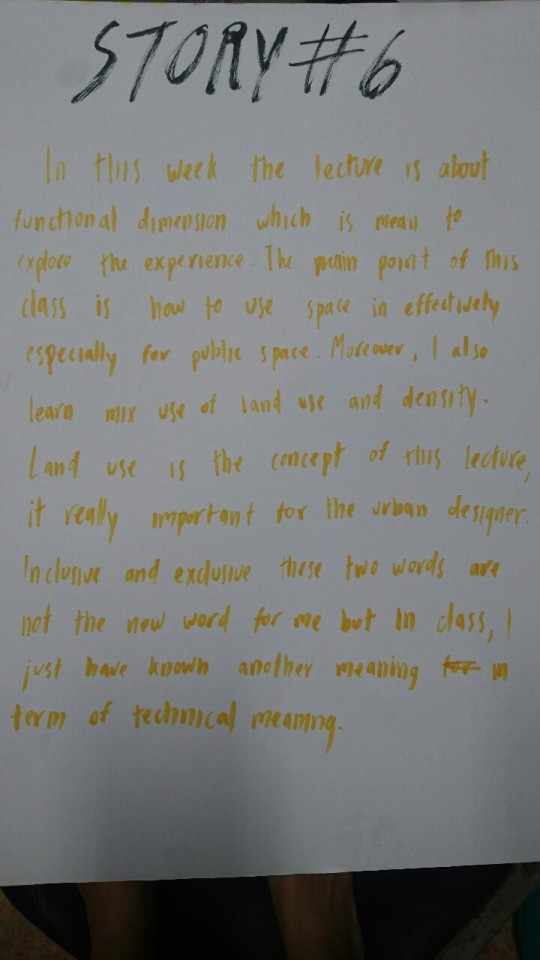 STORY #6
In this week the lecture is about
functional dimension which is mean to
explore the experience. The main point of this
class is how to use space in effectively
especially for public space. Moreover, I also
learn mix use of land use and density.
Land use is the concept of this lecture,
it really important for the urban designer.
Inclusive and exclusive these two words are
not the new word for me but in class, I
just have known another meaning for in
term of technical meaning.